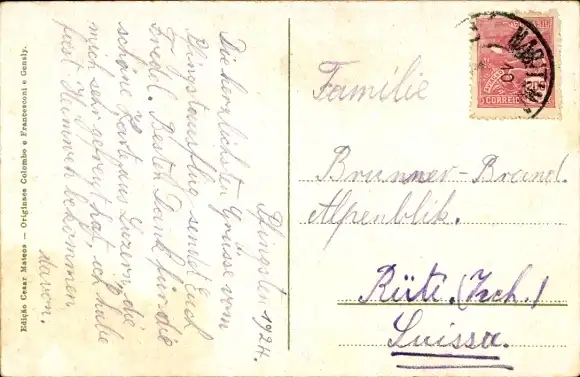 Edição Cesar Mateos — Originaes Colombo e Francesconi e Gensly.
Pfingsten 1924.
Die herzlichsten Grüsse vom
Pfingstausflug sendet Euch
Fredel. Besten Dank für die
schöne Karte aus Luzern, die
mich sehr gefreut hat, ich habe
fast Heimweh bekommen
davon.
CORREIO
Familie
Brunner-Brand.
Alpenblik.
Rüti. (Zch.)
Suissa.